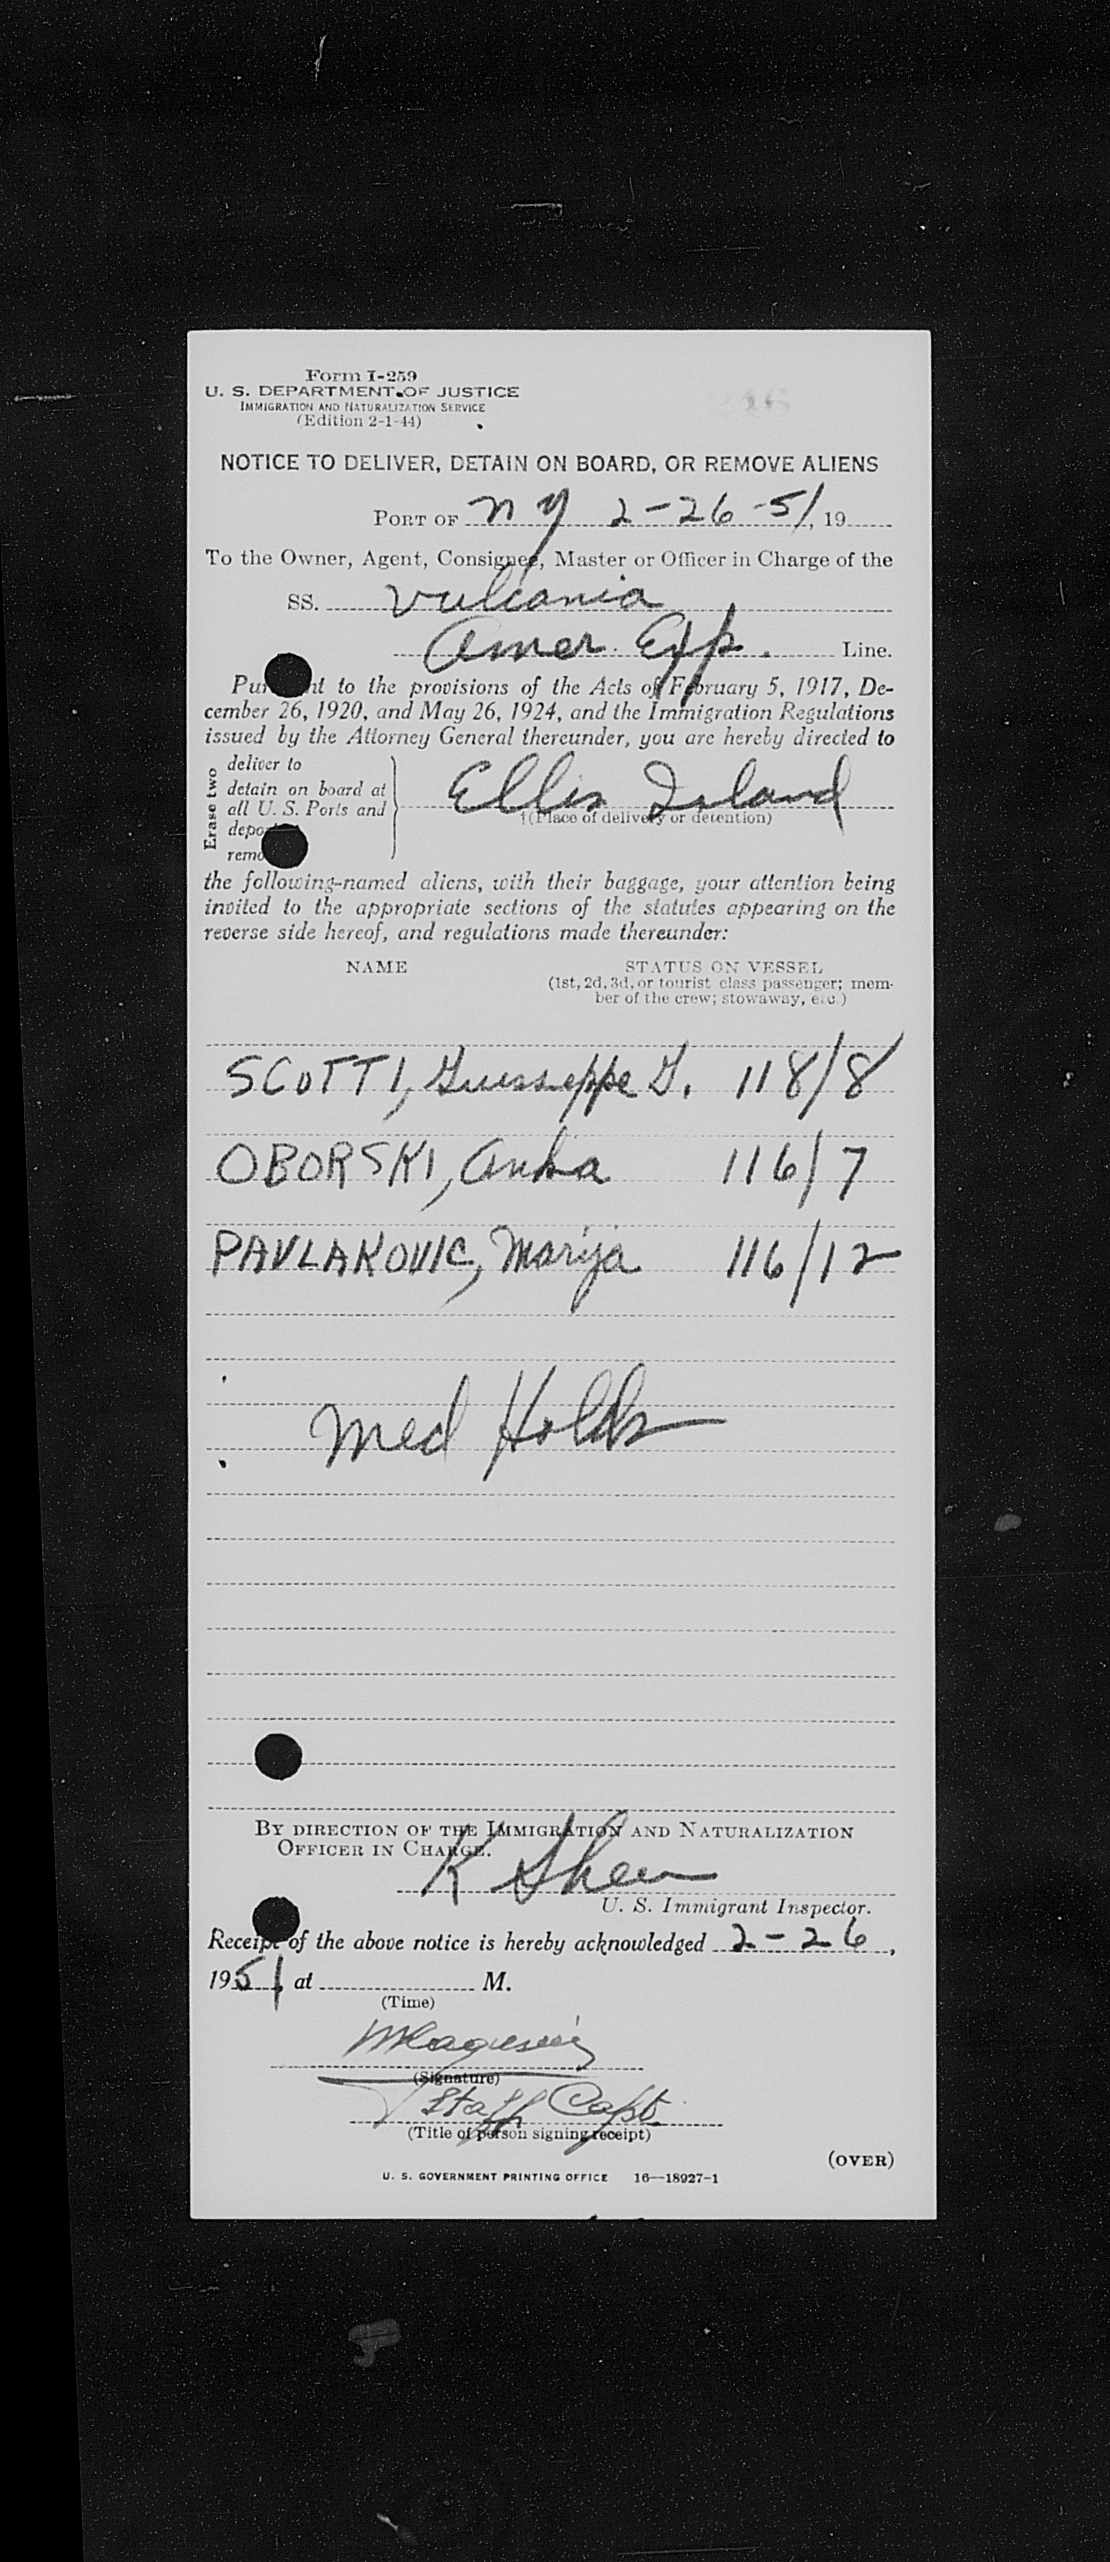 Form I-259
U. S. DEPARTMENT OF JUSTICE
IMMIGRATION AND NATURALIZATION SERVICE
(Edition 2-1-44)
NOTICE TO DELIVER, DETAIN ON BOARD, OR REMOVE ALIENS
PORT OF N Y 2-26-51, 19
To the Owner, Agent, Consignee, Master or Officer in Charge of the
SS. Vulcania
Amer. Exp. Line.
Pursuant to the provisions of the Acts of February 5, 1917, De-
cember 26, 1920, and May 26, 1924, and the Immigration Regulations
issued by the Attorney General thereunder, you are hereby directed to
Erase two
deliver to
detain on board at
all U. S. Ports and
Ellis Island
†(Place of delivery or detention)
the following-named aliens, with their baggage, your attention being
invited to the appropriate sections of the statutes appearing on the
reverse side hereof, and regulations made thereunder:
NAME STATUS ON VESSEL
(1st, 2d, 3d, or tourist class passenger; mem-
ber of the crew; stowaway, etc.)
SCOTTI, Guiseppe G. 118/8
OBORSKI, Anka 116/7
PAVLAKOVIC, Marija 116/12
Med Holds
BY DIRECTION OF THE IMMIGRATION AND NATURALIZATION
OFFICER IN CHARGE.
K Shea
U. S. Immigrant Inspector.
Receipt of the above notice is hereby acknowledged 2-26,
1951, at M.
(Time)
(Signature)
Staff Capt.
(Title of person signing receipt)
(OVER)
U. S. GOVERNMENT PRINTING OFFICE 16—18927-1